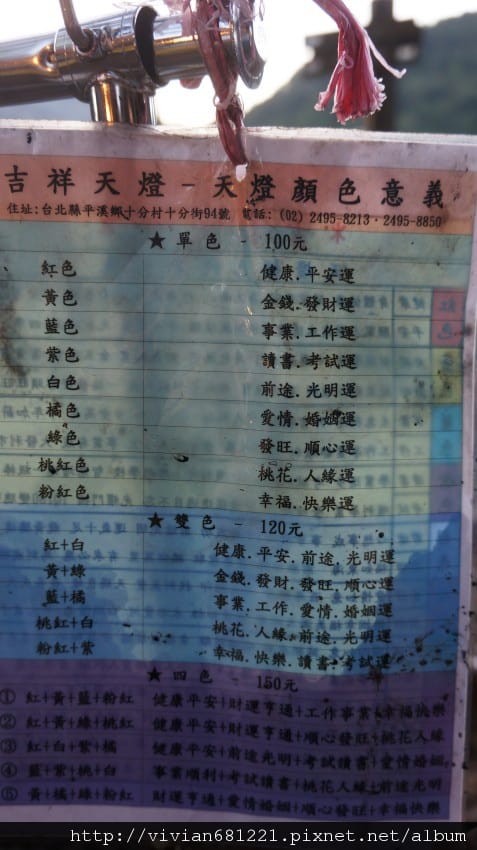 吉祥天燈 - 天燈顏色意義
住址:台北縣平溪鄉十分村十分街94號 電話: (02) 2495-8213·2495-8850
★ 單色 - 100元
紅色 健康.平安運
黃色 金錢.發財運
藍色 事業.工作運
紫色 讀書.考試運
白色 前途.光明運
橘色 愛情.婚姻運
綠色 發旺.順心運
桃紅色 桃花.人緣運
粉紅色 幸福.快樂運
★ 雙色 - 120元
紅+白 健康.平安.前途.光明運
黃+綠 金錢.發財.發旺.順心運
藍+橘 事業.工作.愛情.婚姻運
桃紅+白 桃花.人緣.前途.光明運
粉紅+紫 幸福.快樂.讀書.考試運
★ 四色 - 150元
① 紅+黃+藍+粉紅 健康平安+財運亨通+工作事業+幸福快樂
② 紅+黃+綠+桃紅 健康平安+財運亨通+順心發旺+桃花人緣
③ 紅+白+紫+橘 健康平安+前途光明+考試讀書+愛情婚姻
④ 藍+紫+桃+白 事業順利+考試讀書+桃花人緣+前途光明
⑤ 黃+橘+綠+粉紅 財運亨通+愛情婚姻+順心發旺+幸福快樂
http://vivian681221.pixnet.net/album